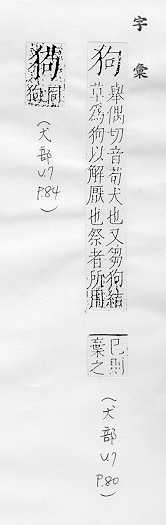 字彙
狗
舉偶切音苟犬也又芻狗結
草為狗以解厭也祭者所用
已則
棄之
(犬部
V.7
P.80)
同
(犬部
V.7
P.84)